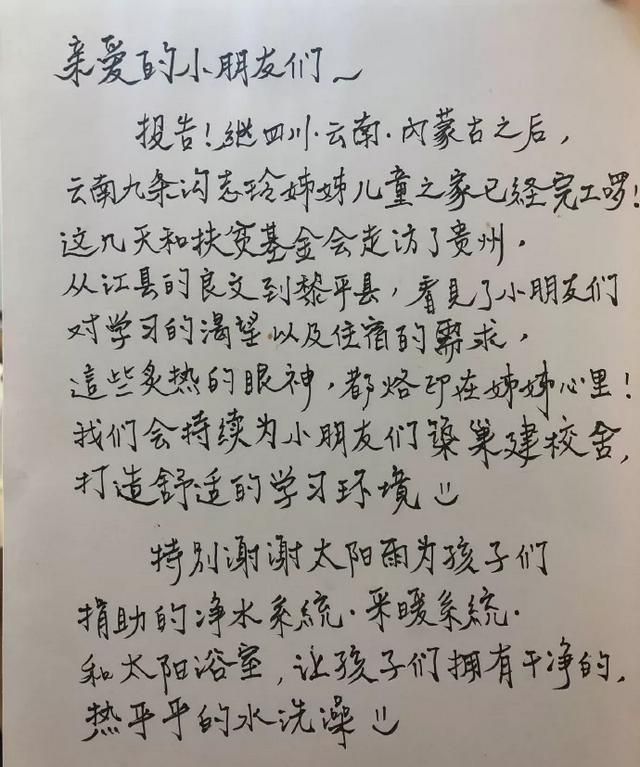 亲爱的小朋友们~
报告!继四川·云南·内蒙古之后,
云南九条沟志玲姊姊儿童之家已经完工啰!
这几天和扶贫基金会走访了贵州,
从江县的良文到黎平县,看見了小朋友们
对学习的渴望以及住宿的需求,
這些炙热的眼神,都烙印在姊姊心里!
我们会持续为小朋友们築巢建校舍,
打造舒适的学习环境
特别谢谢太阳雨为孩子们
捐助的净水系統·采暖系統·
和太阳浴室,让孩子们拥有干净的,
热乎乎的水洗澡